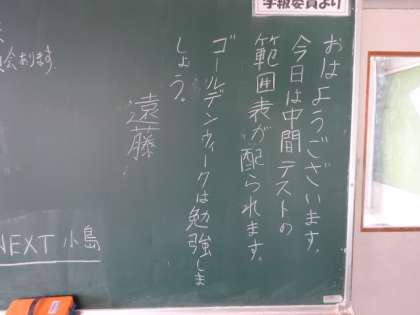 学級委員より
おはようございます。
今日は中間テストの
範囲表が配られます。
ゴールデンウィークは勉強しま
しょう。
遠藤
会あります
NEXT 小島